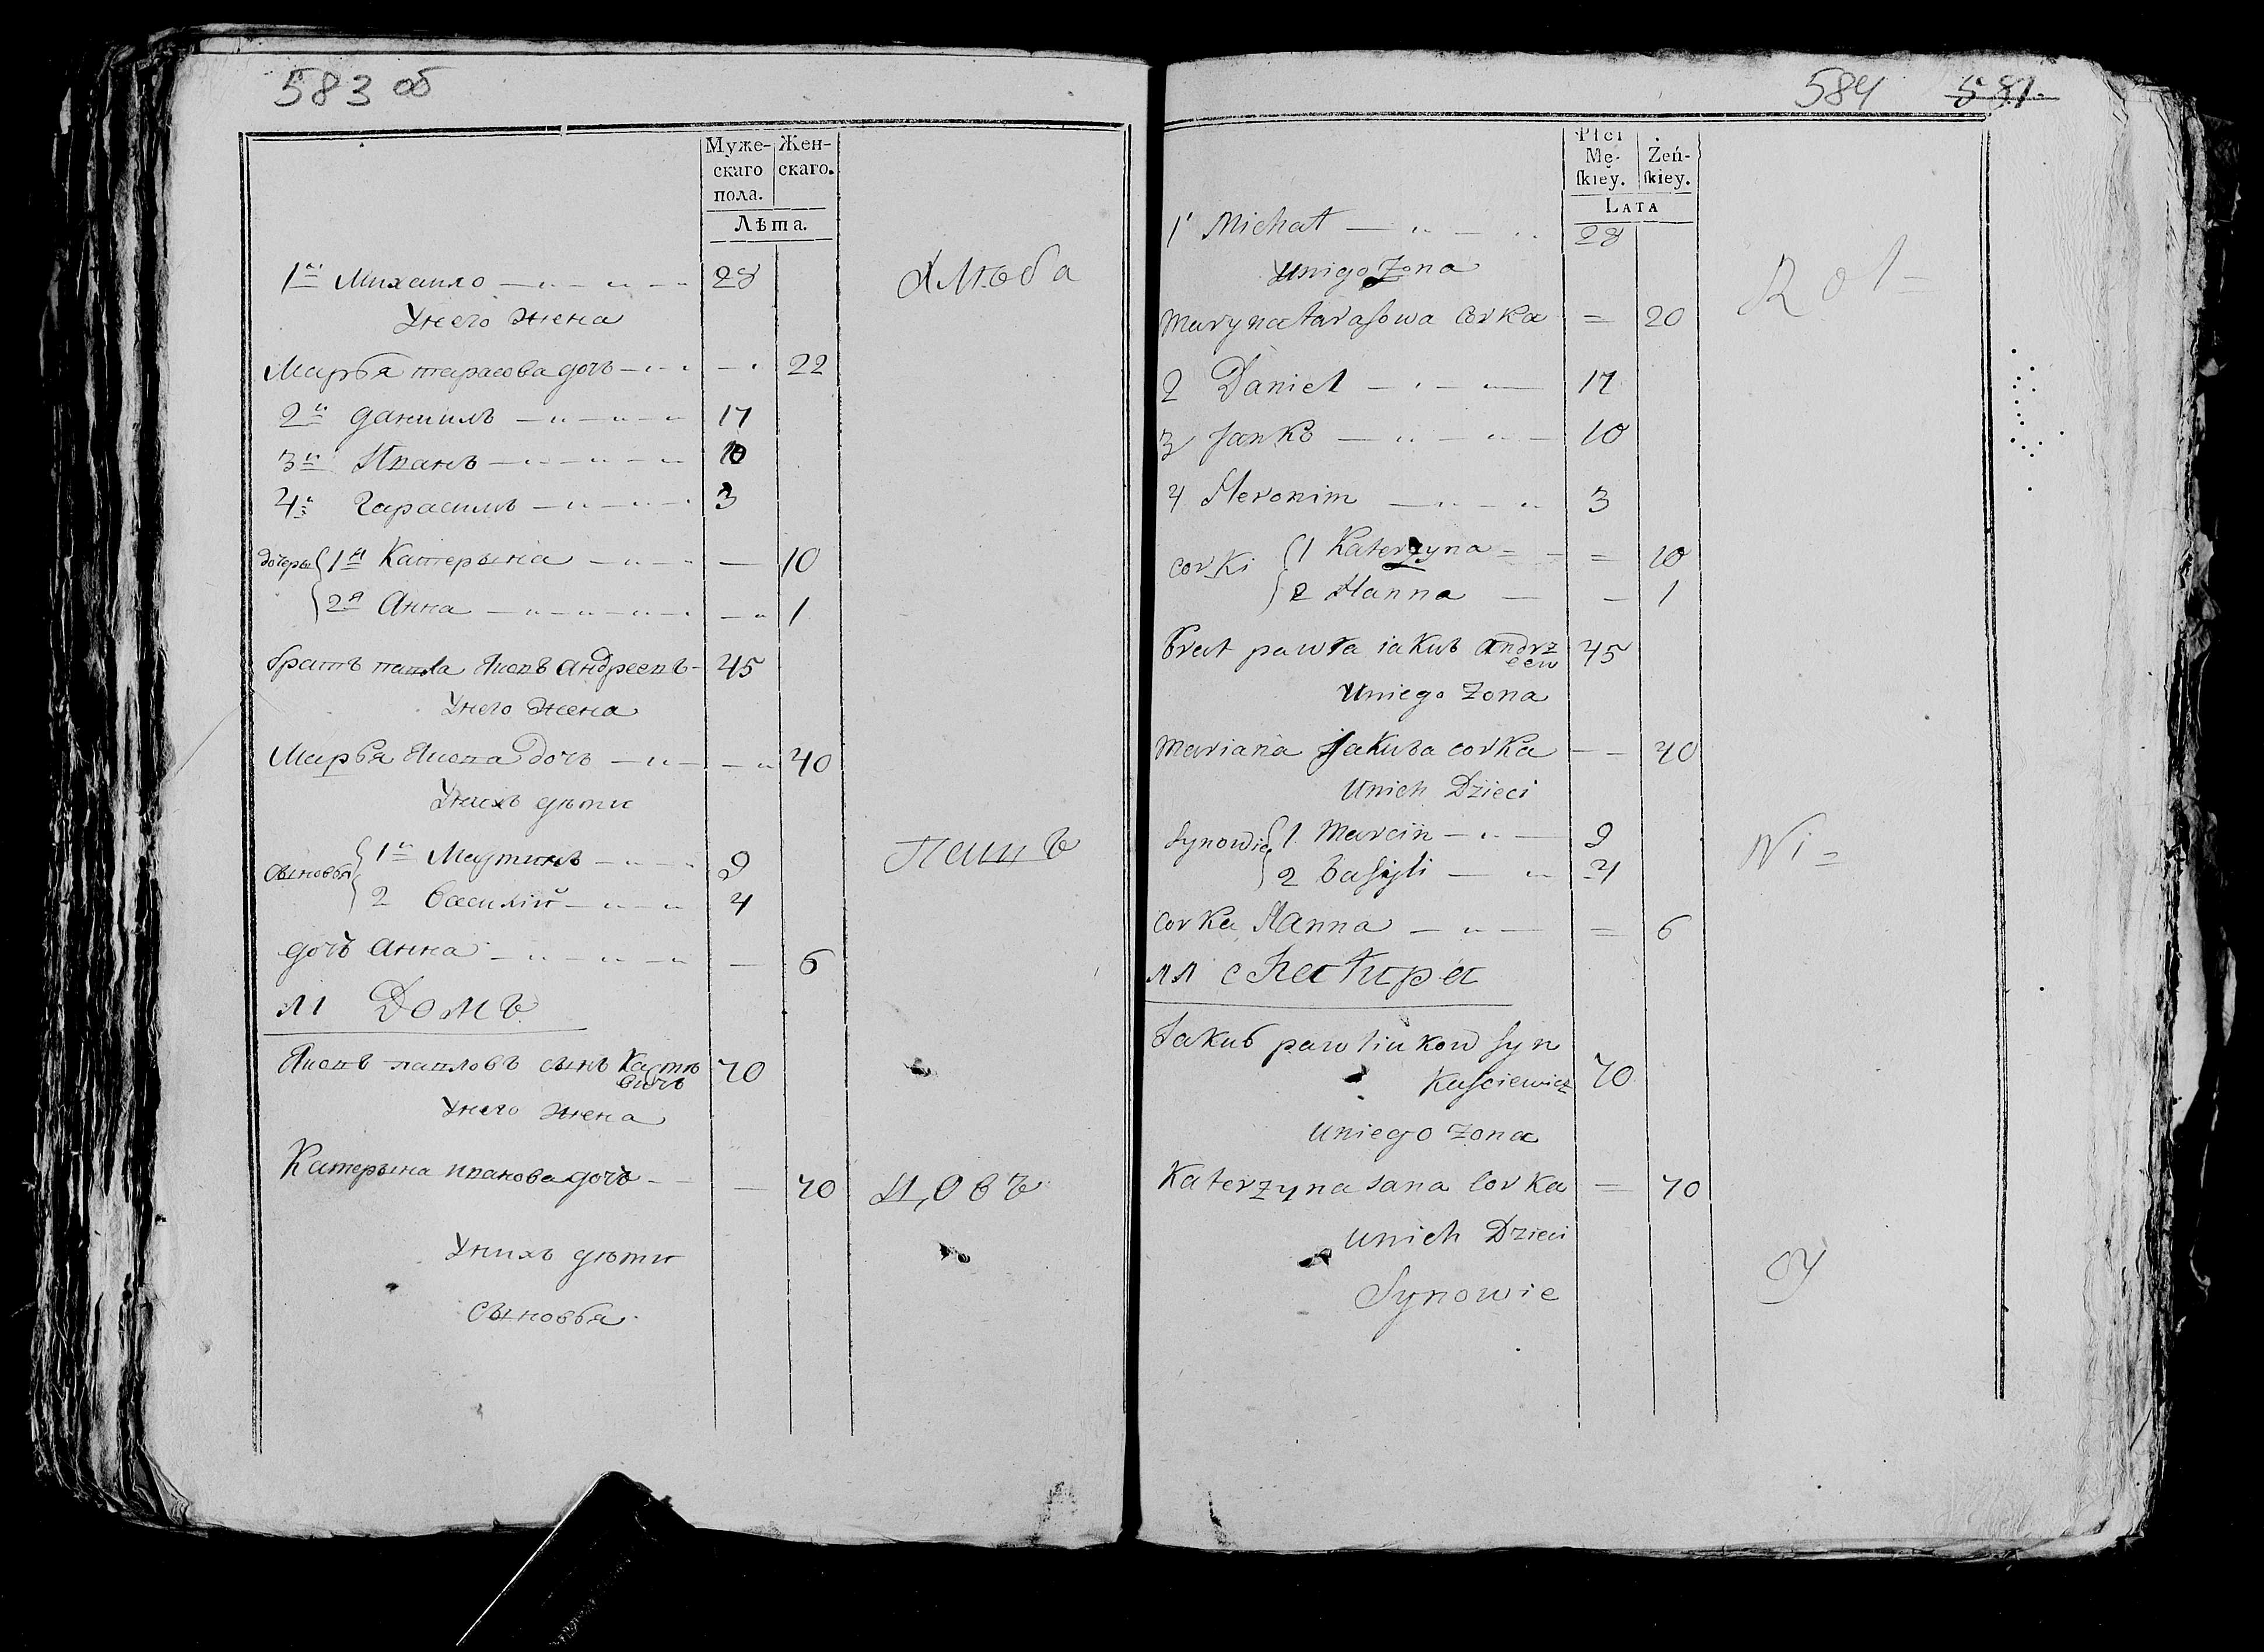 583 об
Муже-
скаго
пола.
Жен-
скаго.
Лѣта.
1й Михаило 28
У него жена
Марья тарасова дочь 22
2й Даниилъ 17
3й Иванъ 10
4й Гарасимъ 3
дочеры 1я Катерына 10
2я Анна 1
братъ павла Яковъ Андреевъ 45
У него жена
Марья Якова дочь 40
У нихъ дѣти
сыновья 1й Мартинъ 9
2 Василій 4
дочь Анна 6
11 Домъ
Яковъ павловъ сынъ 70
У него жена
Катерына иванова дочь 70
У нихъ дѣти
Сыновья
584 581
Płci
Mę-
ſkiey.
Żeń-
ſkiey.
LATA
1 Michał 28
Unigo Zona
Maryna tarasowa Corka = 20
2 Daniel 17
3 Janko 10
4 Heronim 3
Corki 1 Katerzyna = 10
2 Hanna 1
Brat pawła iakub andrz
eew 45
Uniego Zona
Mariana Jakuba corka 40
Unich Dzieci
Synowie 1. Marcin 9
2 basyli 4
Corka Hanna = 6
Jakub pawliukow syn
Kasciewicz 70
Uniego Zona
Katerzyna Jana Corka = 70
Unich Dzieci
Synowie